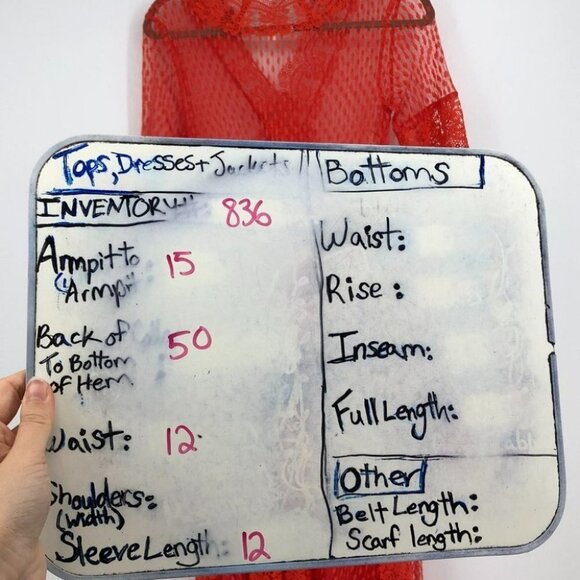 Tops, Dresses + Jackets
INVENTORY # 836
Armpit to
Armpit 15
Back of
To Bottom
of Hem 50
Waist: 12
Shoulders:
(width)
Sleeve Length: 12
Bottoms
Waist:
Rise:
Inseam:
Full Length:
Other
Belt Length:
Scarf length: